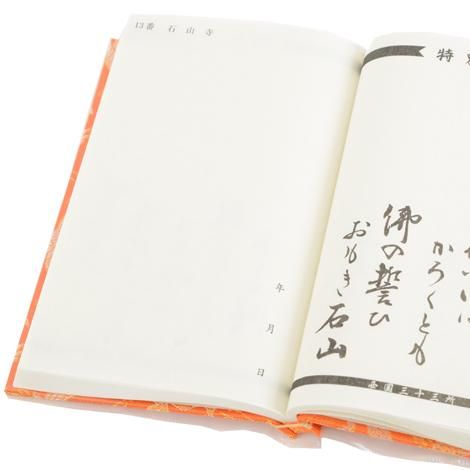 13番 石山寺
年 月 日
特別
かろくとも
佛の誓ひ
おもき石山
西國三十三所